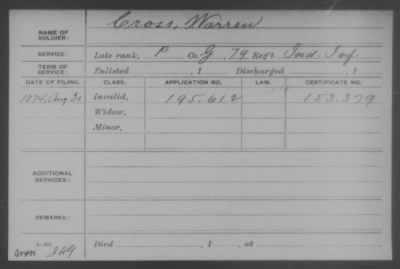 NAME OF SOLDIER: Cross, Warren
SERVICE: Late rank, P Co. G, 79 Reg't Ind. Inf.
TERM OF SERVICE: Enlisted , 1 Discharged , 1
DATE OF FILING. CLASS. APPLICATION NO. LAW. CERTIFICATE NO.
1874, Aug 31 Invalid, 195.612 153.379
Widow,
Minor,
ADDITIONAL SERVICES:
REMARKS:
Died , 1 , at